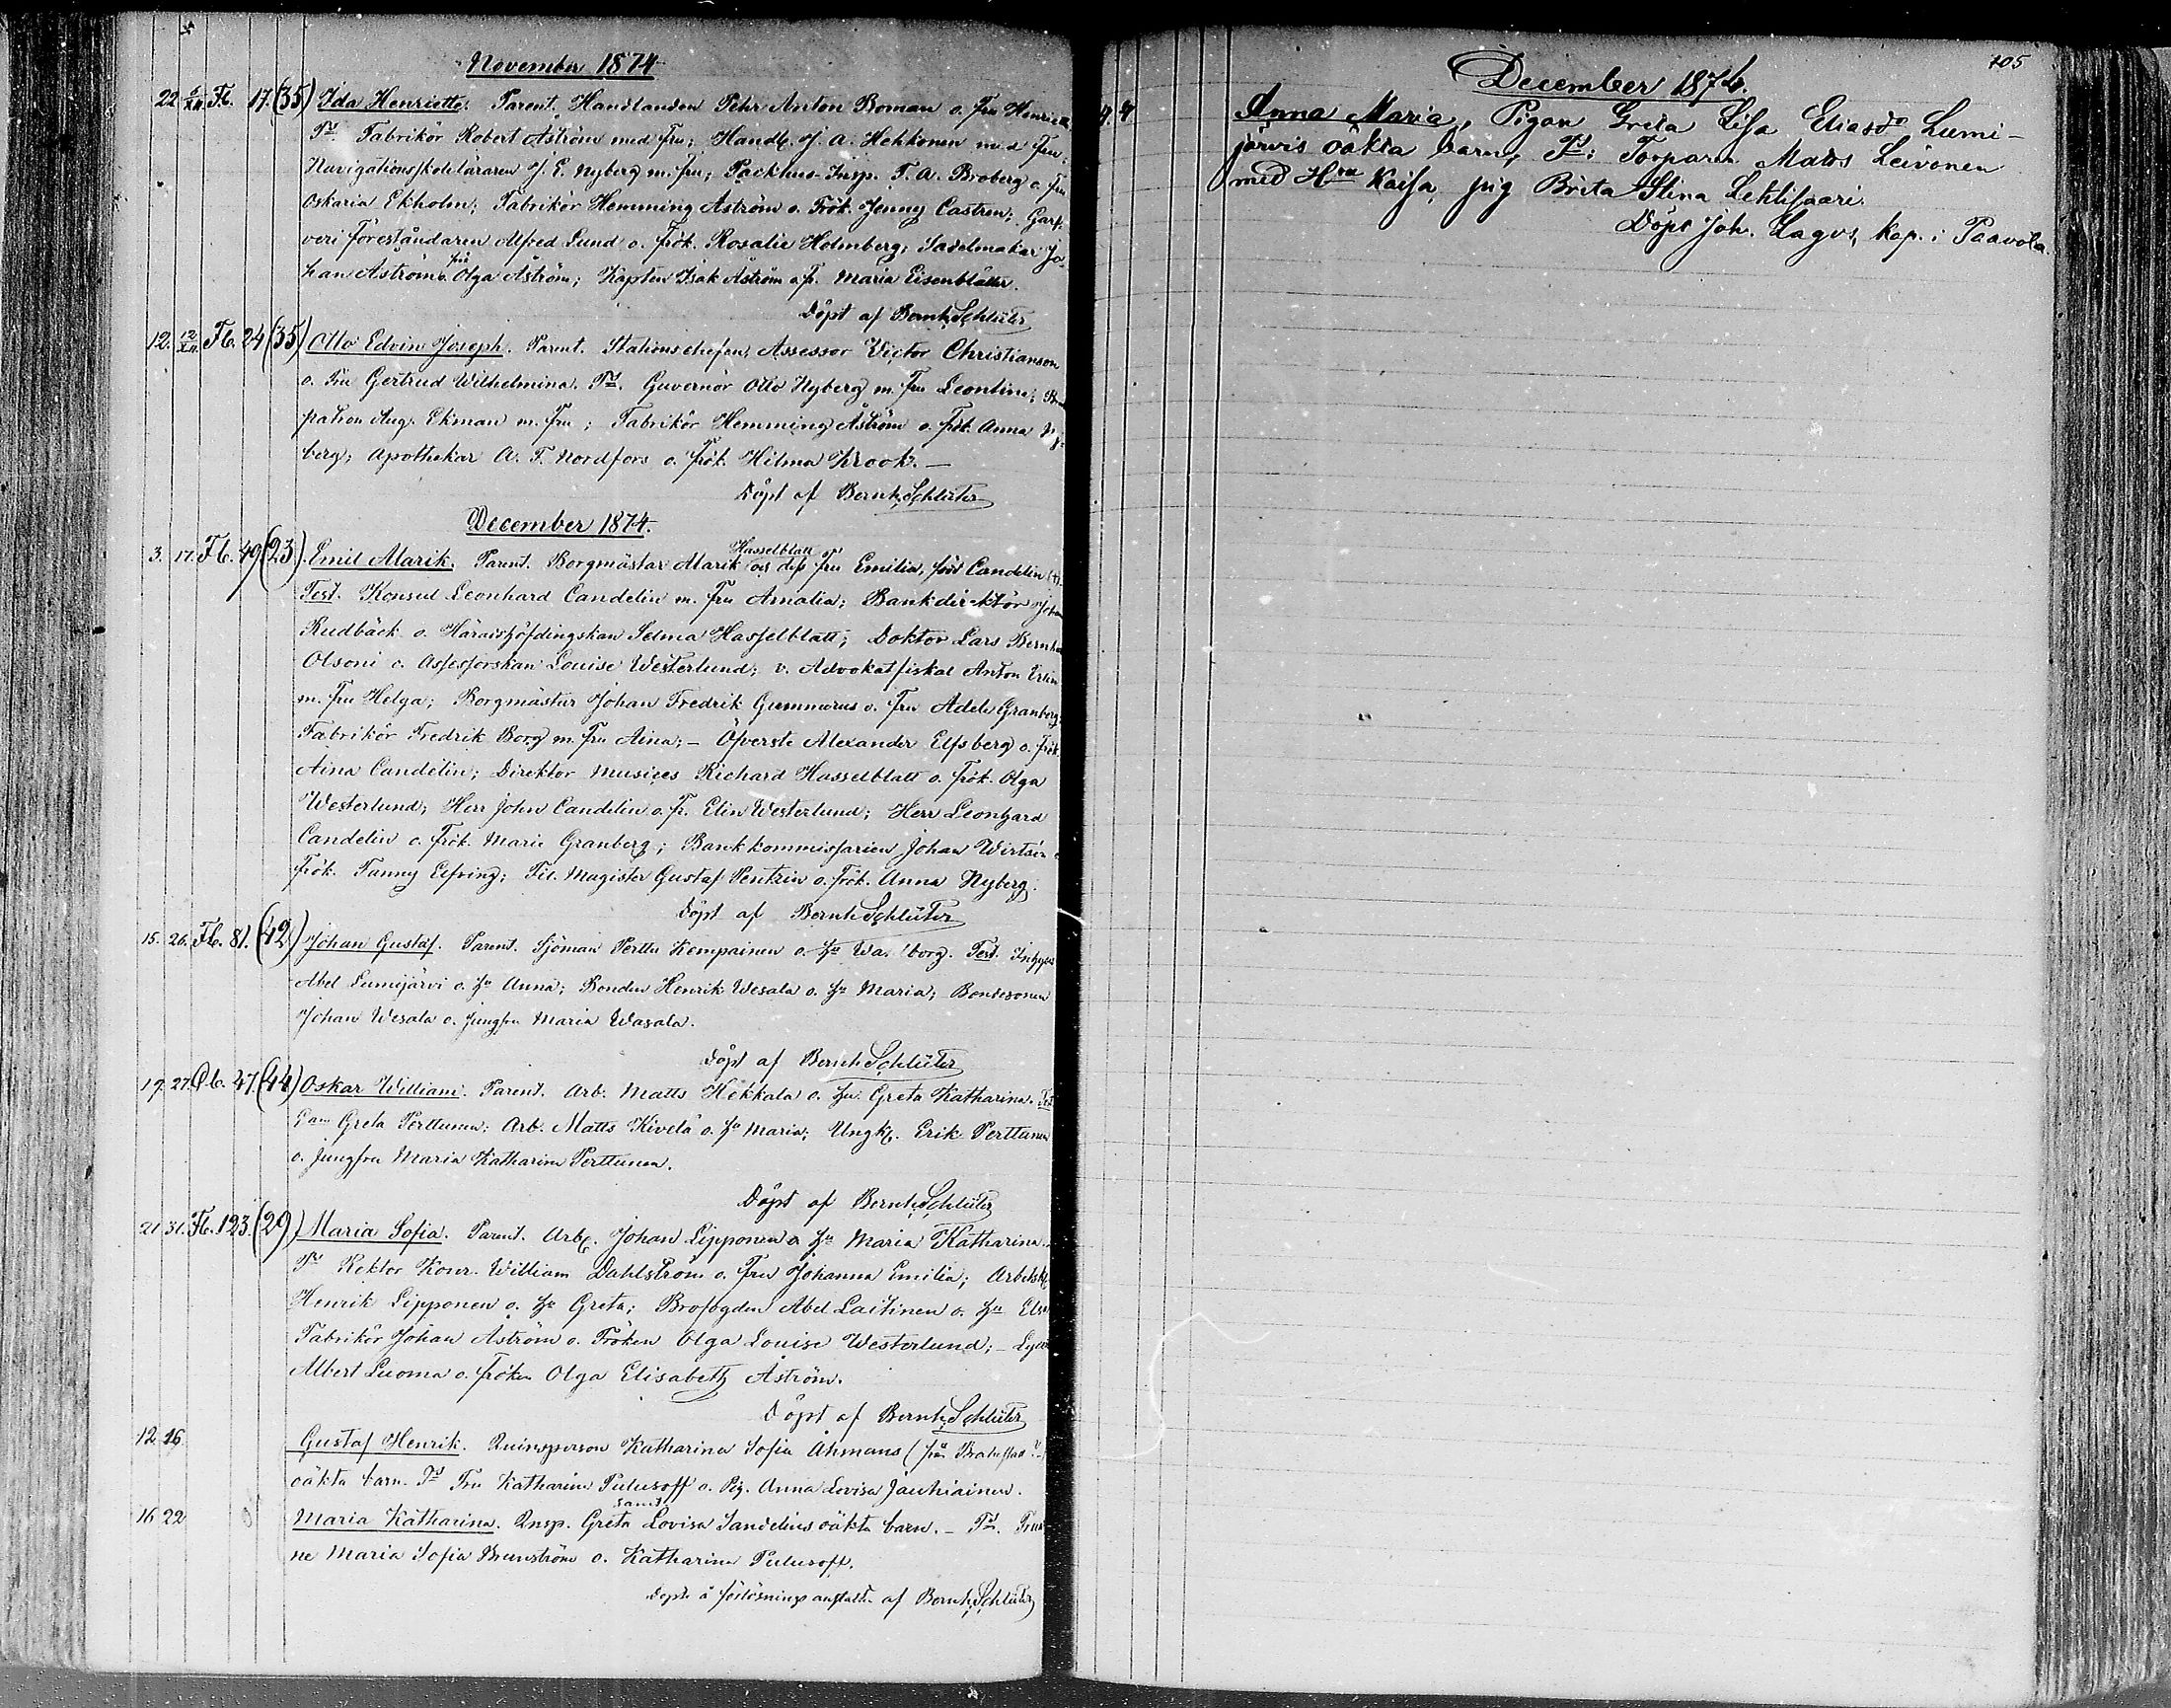 November 1874
22 Fb. 17. (35) Ida Henriette. Parent. Handlanden Pehr Anton Boman o. fru Henriette
Tt Fabrikör Robert Åström med fru; Handl. J. A. Hehkonen med fru;
Navigationsskoleläraren J. E. Nyberg m. fru; Packhus-Insp. F. A. Broberg o. fru
Oskaria Ekholm; Fabrikör Hemming Åström o. Frök. Jenny Castren; Garf-
veri föreståndaren Alfred Lund o. frök. Rosalie Holmberg; Sadelmakar Jo-
han Åström o. frö Olga Åström; Kapten Isak Åström o. fr. Maria Eisenblätter.
Döpt af Bernh. Schlüter
12. 12/XII. Fb. 24 (35) Otto Edvin Joseph. Parent. Stationschefen, Assessor Victor Christianson
o. Fru Gertrud Wilhelmina. Tt. Guvernör Otto Nyberg m. fru Leontine;
patron Aug. Ekman m. fru; Fabrikör Hemming Åström o. frök. Anna Ny-
berg; Apothekar A. F. Nordfors o. frök. Hilma Krook. —
Döpt af Bernh. Schlüter
December 1874.
3. 17. Fb. 49 (23). Emil Alarik. Parent. Borgmästar Alarik Hasselblatt och dess fru Emilia, född Candelin
Test. Konsul Leonhard Candelin m. fru Amalia; Bankdirektör Johan
Rudbäck o. Häradshöfdingskan Selma Hasselblatt; Doktor Lars Bernhard
Olsoni o. Assessorskan Louise Westerlund; v. Advokatfiskal Anton
m. fru Helga; Borgmästar Johan Fredrik Gummerus o. fru Adele Granberg;
Fabrikör Fredrik Borg m. fru Aina; — Öfverste Alexander Elfsberg o. frök.
Aina Candelin; Direktor Musices Richard Hasselblatt o. frök. Olga
Westerlund; Herr John Candelin o. fr. Elin Westerlund; Herr Leonhard
Candelin o. frök. Marie Granberg; Bankkommissarien Johan Wirtsén o.
frök. Fanny Elfving; Fil. Magister Gustaf Pentzin o. frök. Anna Nyberg.
Döpt af Bernh. Schlüter
15. 26. Fb. 81. (42) Johan Gustaf. Parent. Sjöman Perttu Kempainen o. hu Walborg. Test.
Abel Lumijärvi o. hu Anna; Bonden Henrik Wesala o. hu Maria; Bondesonen
Johan Wesala o. jungfru Maria Wasala.
Döpt af Bernh. Schlüter
19. 27. Qb. 47. (44) Oskar William. Parent. Arb. Matts Hekkala o. hu. Greta Katharina. Test
Greta Perttunen; Arb. Matts Kivelä o. hu Maria; Ungk. Erik Perttunen
o. jungfru Maria Katharina Perttunen.
Döpt af Bernh. Schlüter
21. 31. Fb. 123. (29) Maria Sofia. Parent. Arb. Johan Lipponen o. hu Maria Katharina.
Tt Rektor Konr. William Dahlström o. fru Johanna Emilia; Arbetsk.
Henrik Lipponen o. hu Greta; Brofogden Abel Laitinen o. hu Elsa
Fabrikör Johan Åström o. Fröken Olga Louise Westerlund; —
Albert Luoma o. fröken Olga Elisabeth Åström.
Döpt af Bernh. Schlüter
12 16 Gustaf Henrik. Quinsperson Katharina Sofia Åhmans (från Brahestad)
oäkta barn. Tt Fru Katharina Pulusoff o. Pig. Anna Lovisa Jauhiainen.
16 22 Maria Katharina. Qnsp. Greta Lovisa Sandelins oäkta barn. — Tt.
ne Maria Sofia Brunström o. Katharina Pulusoff.
Döpte å förlösnings anstalten af Bernh. Schlüter
105
December 1874.
Anna Maria, Pigan Greta Lisa Eliasdr Lumi-
järvis oäkta barn, Tt: Torparen Matts Leivonen
med Hru Kaisa, pig Brita Stina Lehtisaari.
Döpt Joh. Lagus, kap. i Paavola.